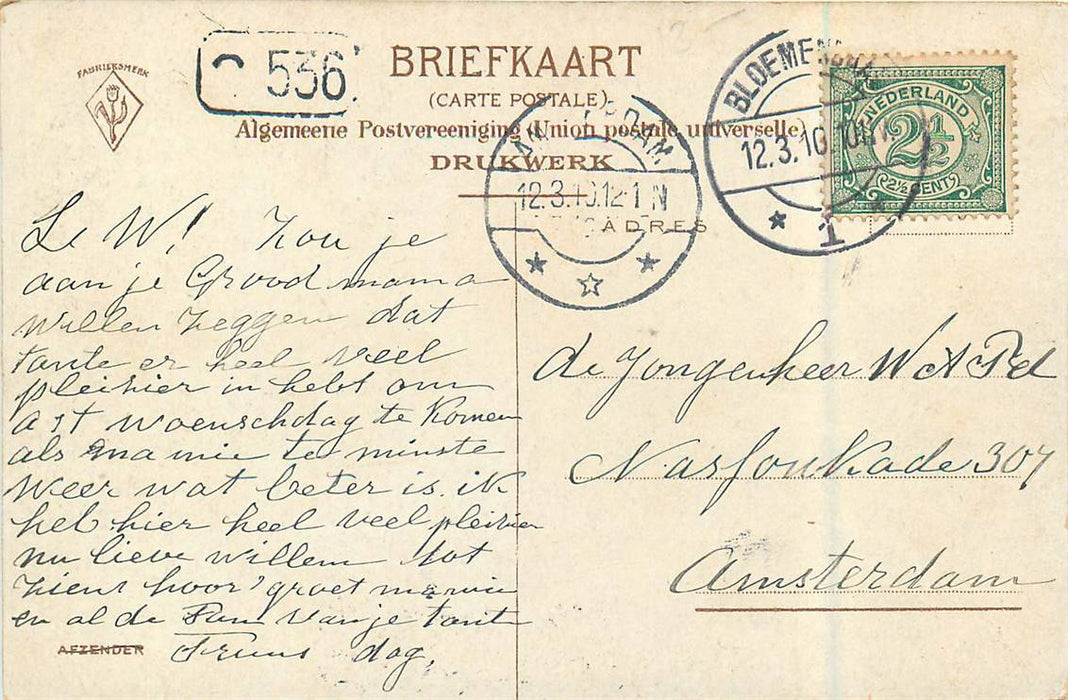 FABRIEKSMERK
536
BRIEFKAART
(CARTE POSTALE)
Algemeene Postvereeniging (Union postale universelle)
DRUKWERK
ADRES
12.3.10.12-1 N
BLOEMEND
12.3.10
1
NEDERLAND
2½
2½ CENT
Le W! Zou je
aan je Grood mama
willen zeggen dat
tante er heel veel
pleisier in hebt om
a st woenschdag te komen
als ma mie te minste
weer wat beter is. ik
heb hier heel veel pleisier
nu lieve willem tot
ziens hoor' groet mamie
en al de Fam van je tante
Truus dag,
AFZENDER
de Jongenheer W A Pel
Nassoukade 307
Amsterdam